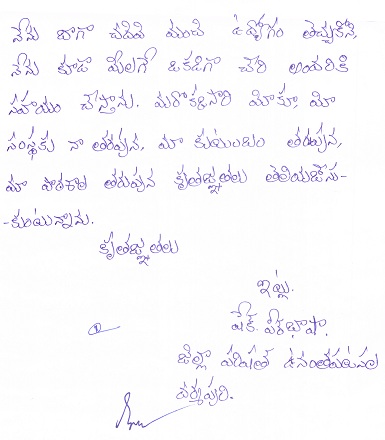 నేను బాగా చదివి మంచి ఉద్యోగం తెచ్చుకొని,
నేను కూడా మీలాగే ఒకడిగా చేరి అందరికి
సహాయం చేస్తాను. మరొక్కసారి మీకూ, మీ
సంస్థకు నా తరపున, మా కుటుంబం తరపున,
మా పాఠశాల తరుపున కృతజ్ఞతలు తెలియజేసు-
-కుంటున్నాను.
కృతజ్ఞతలు
ఇట్లు.
షేక్.
జిల్లా పరిషత్
ధర్మపురి.